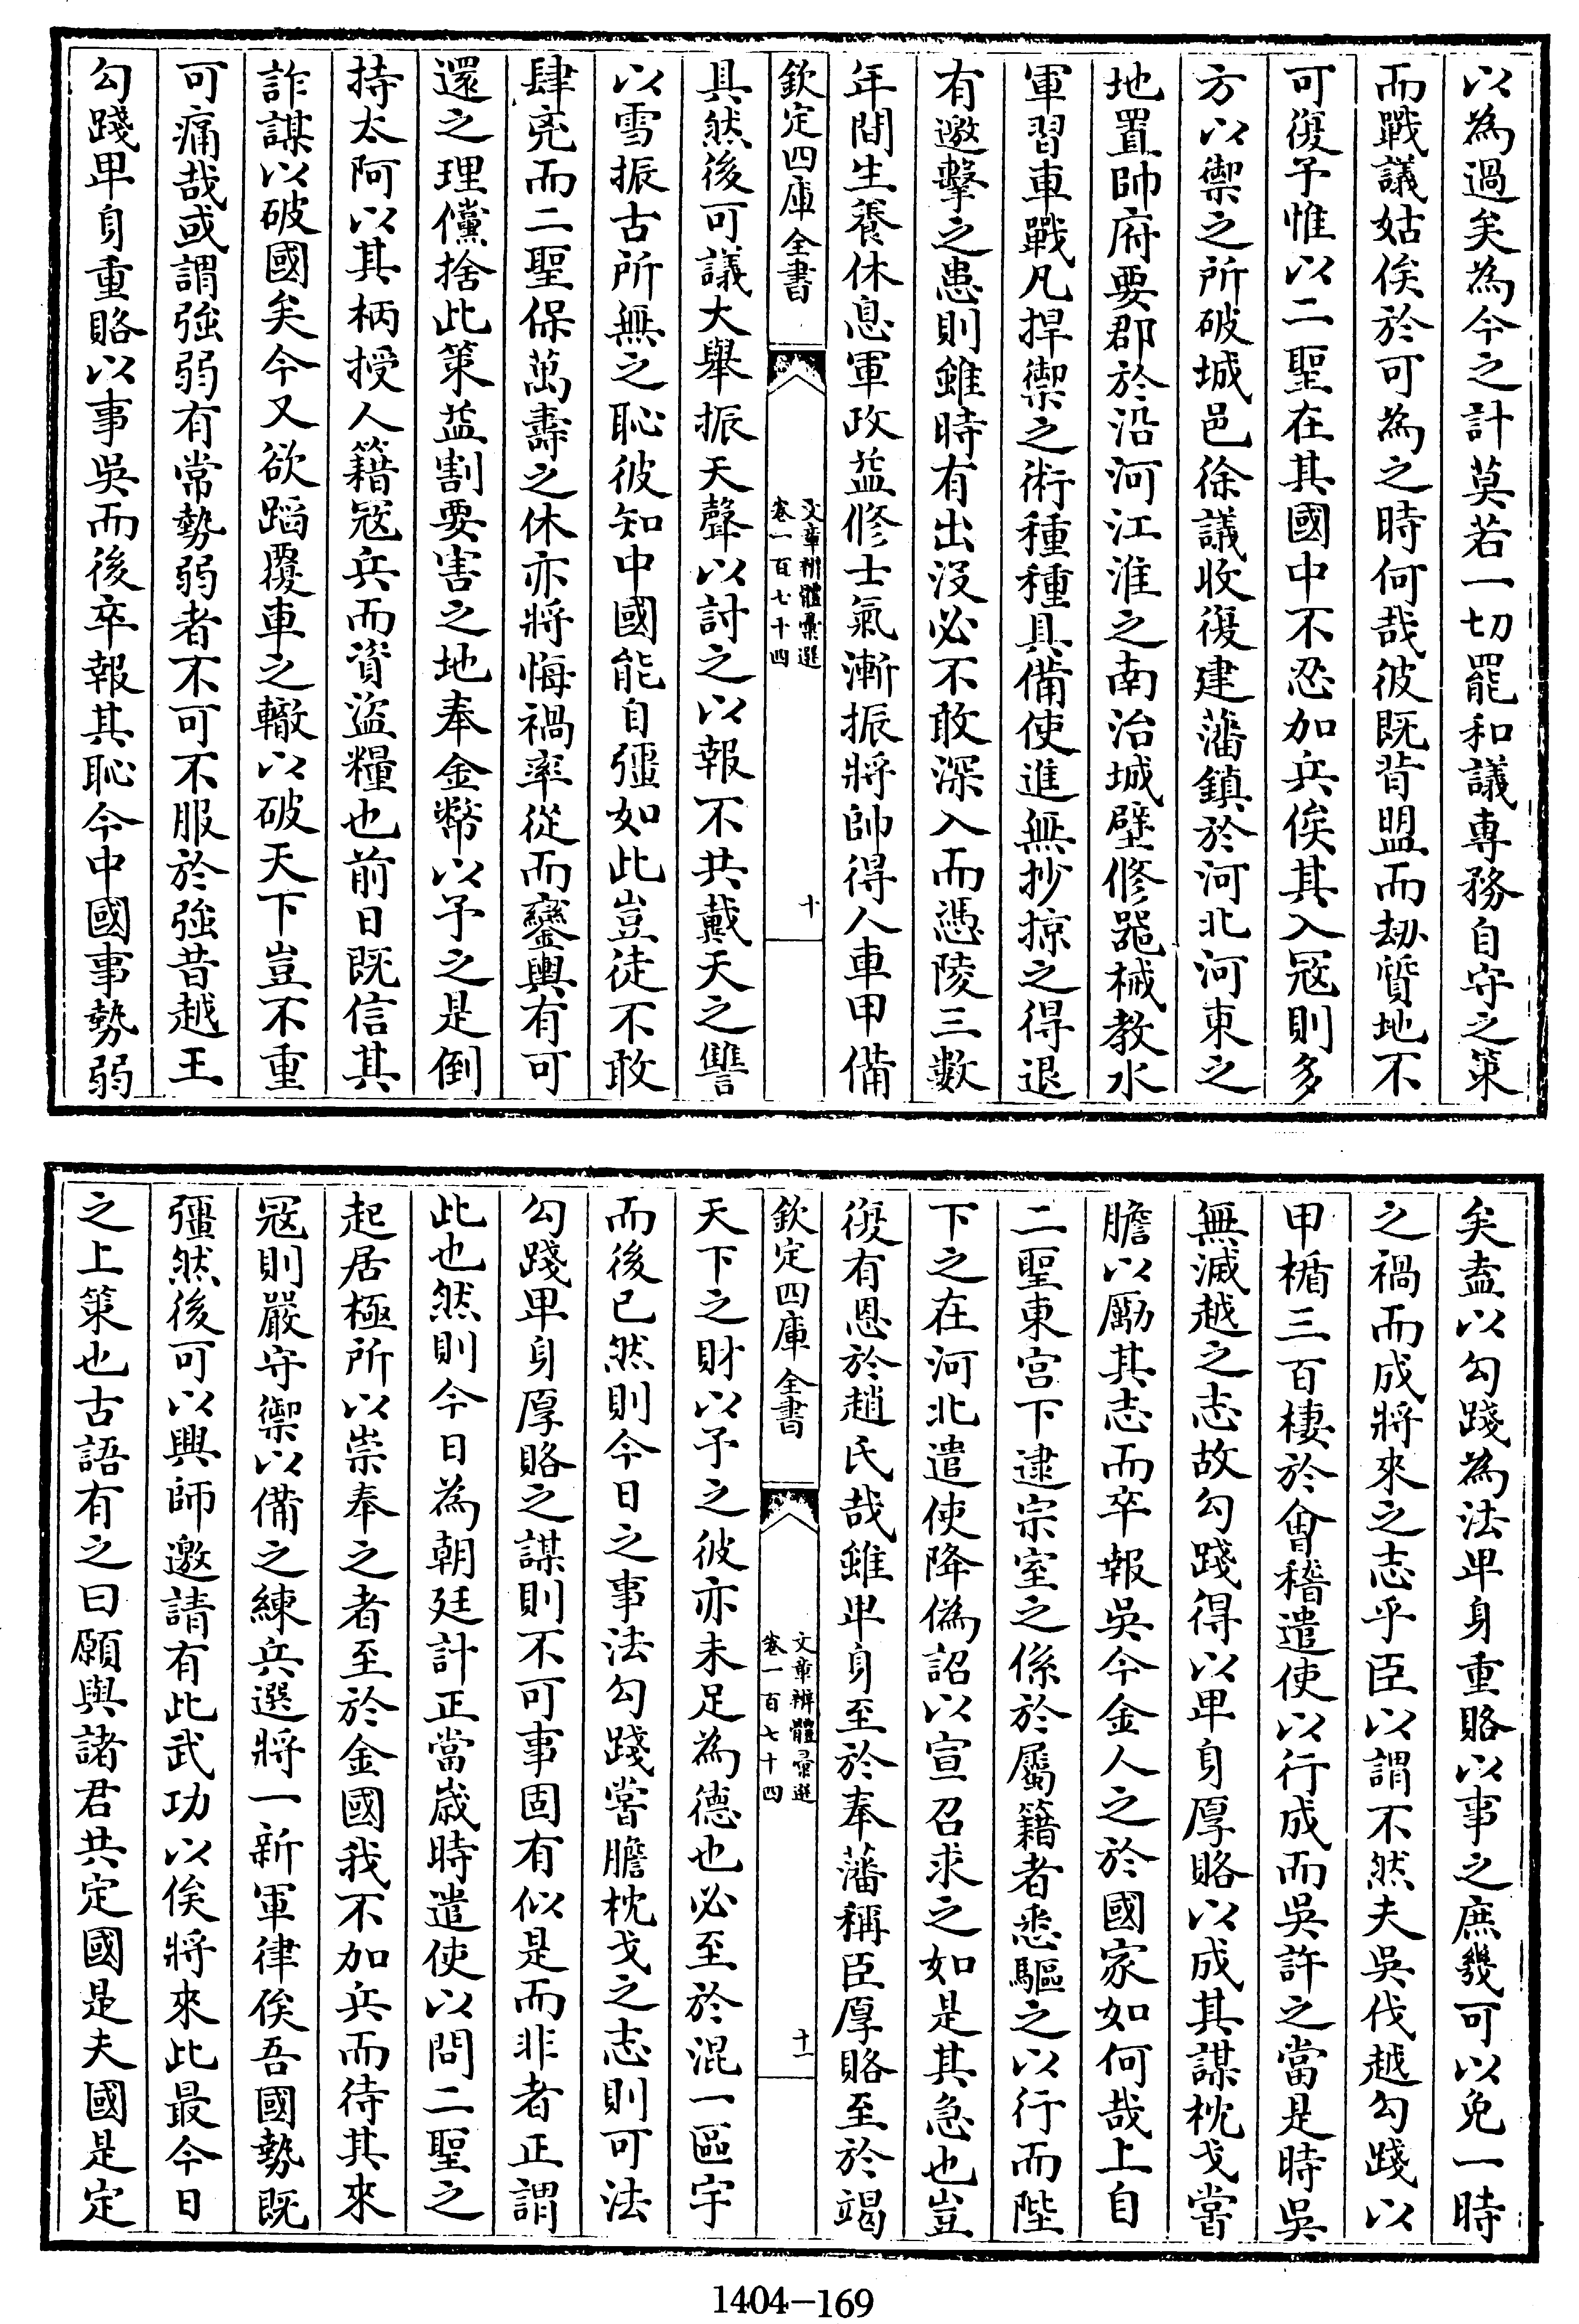 以為過矣為今之計莫若一切罷和議專務自守之策
而戰議姑俟於可為之時何哉彼既背盟而刼質地不
可復予惟以二聖在其國中不忍加兵俟其入冦則多
方以禦之所破城邑徐議收復建藩鎮於河北河東之
地置帥府要郡於沿河江淮之南治城壁修噐械教水
軍習車戰凡捍禦之術種種具備使進無抄掠之得退
有邀擊之患則雖時有出没必不敢深入而憑陵三數
年間生養休息軍政益修士氣漸振將帥得人車甲備
欽定四庫全書
文章辨體彙選
卷一百七十四
十
具然後可議大舉振天聲以討之以報不共戴天之讐
以雪振古所無之恥彼知中國能自彊如此豈徒不敢
肆兇而二聖保萬壽之休亦將悔禍率從而鑾輿有可
還之理儻捨此策益割要害之地奉金幣以予之是倒
持太阿以其柄授人籍冦兵而資盜糧也前日既信其
詐謀以破國矣今又欲蹈覆車之轍以破天下豈不重
可痛哉或謂強弱有常勢弱者不可不服於強昔越王
勾踐卑身重賂以事吳而後卒報其恥今中國事勢弱
矣盍以勾踐為法卑身重賂以事之庶幾可以免一時
之禍而成將來之志乎臣以謂不然夫吳伐越勾踐以
甲楯三百棲於會稽遣使以行成而吳許之當是時吳
無滅越之志故勾踐得以卑身厚賂以成其謀枕戈嘗
膽以勵其志而卒報吳今金人之於國家如何哉上自
二聖東宫下逮宗室之係於屬籍者悉驅之以行而陛
下之在河北遣使降偽詔以宣召求之如是其急也豈
復有恩於趙氏哉雖卑身至於奉藩稱臣厚賂至於竭
欽定四庫全書
文章辨體彙選
卷一百七十四
十一
天下之財以予之彼亦未足為德也必至於混一區宇
而後已然則今日之事法勾踐嘗膽枕戈之志則可法
勾踐卑身厚賂之謀則不可事固有似是而非者正謂
此也然則今日為朝廷計正當歲時遣使以問二聖之
起居極所以崇奉之者至於金國我不加兵而待其來
冦則嚴守禦以備之練兵選將一新軍律俟吾國勢既
彊然後可以興師邀請有此武功以俟將來此最今日
之上策也古語有之曰願與諸君共定國是夫國是定
1404-169